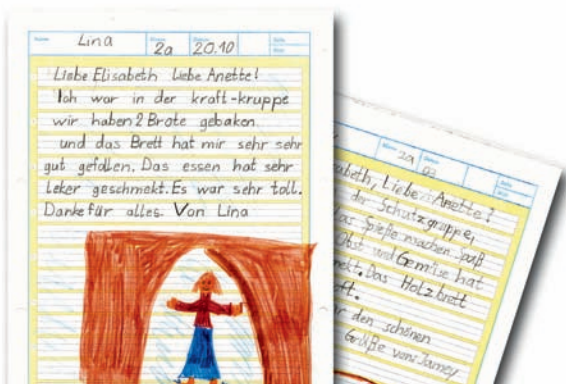 Lina 2a 20.10
Liebe Elisabeth Liebe Anette!
Ich war in der kraft-kruppe
wir haben 2 Brote gebaken.
und das Brett hat mir sehr sehr
gut gefallen. Das essen hat sehr
leker geschmekt. Es war sehr toll.
Danke für alles. Von Lina
2a 03
abeth, Liebe Anette!
der Schutzgruppe,
as Spieße machen paß
Obst und Gemüse hat
mekt. Das Holzbrett
ft.
r den schönen
Grüße von Jamey